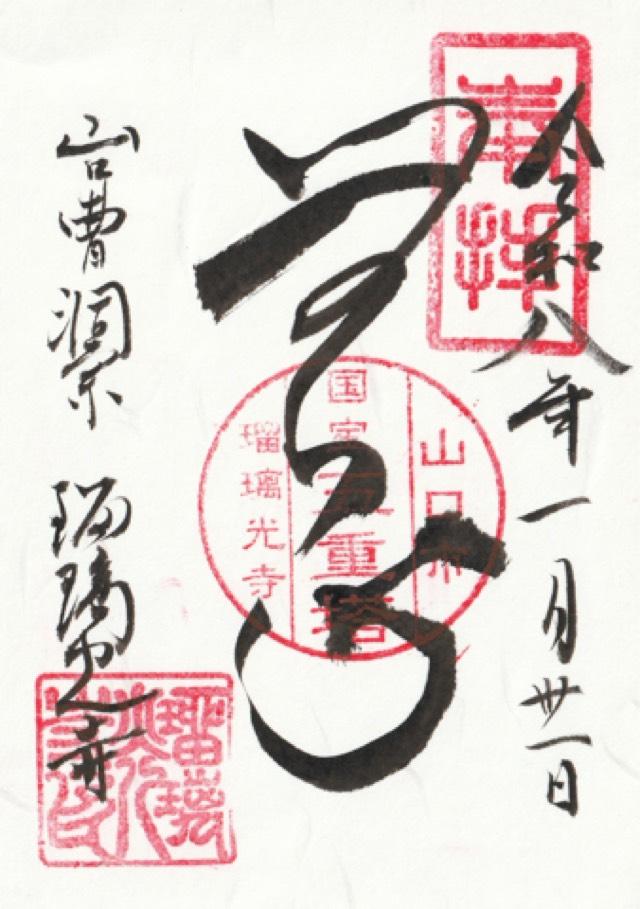 奉拝
令和八年一月卅一日
山口市
国宝五重塔
瑠璃光寺
山口曹洞宗 瑠璃光寺